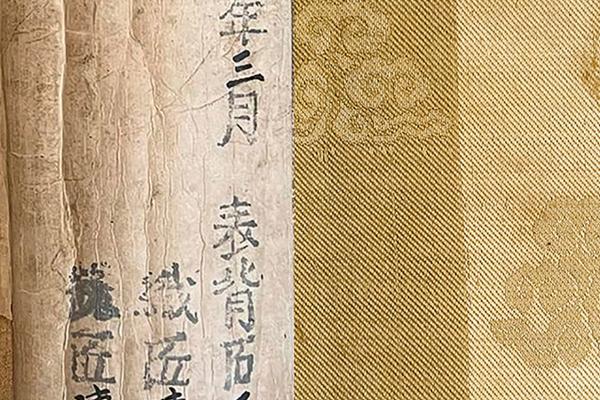 年三月　表背匠
織匠
匠